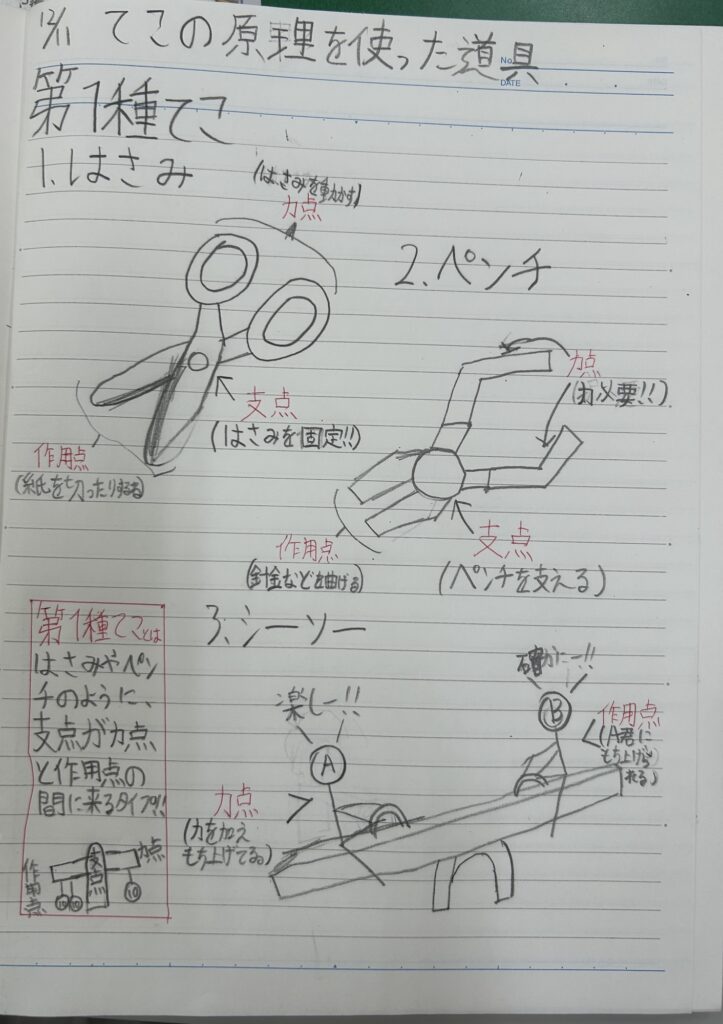 12/11 てこの原理を使った道具
No.
DATE
第1種てこ
1.はさみ
(はさみを動かす)
力点
支点
(はさみを固定!!)
作用点
(紙を切ったりする)
2.ペンチ
力点
(力必要!!)
作用点
(針金などを曲げる)
支点
(ペンチを支える)
第1種てことは
はさみやペン
チのように、
支点が力点
と作用点の
間に来るタイプ!!
作用点
支点
力点
10
10
10
3.シーソー
楽しー!!
A
力点
(力を加え
もち上げてる。)
確かにー!!
B
作用点
(A君に
もち上げら
れる)